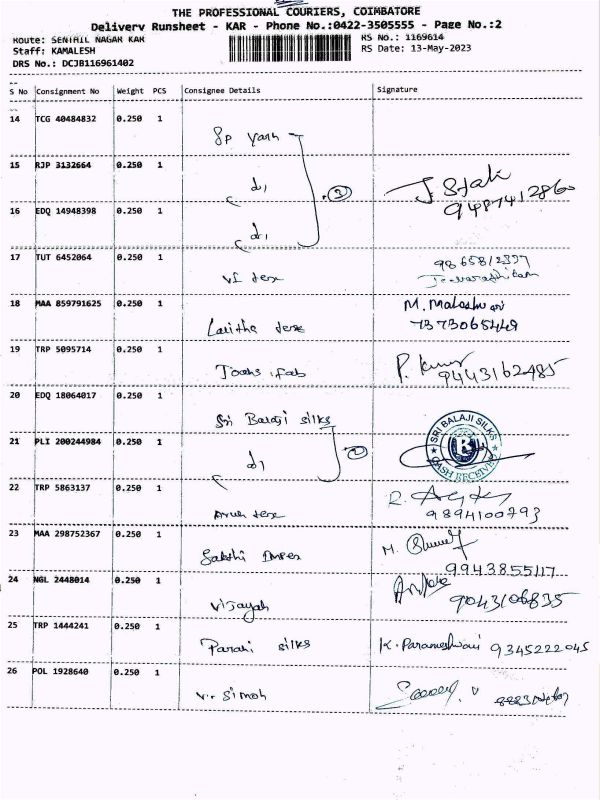 THE PROFESSIONAL COURIERS, COIMBATORE
Delivery Runsheet - KAR - Phone No.:0422-3505555 - Page No.:2
Route: SENTHIL NAGAR KAR
RS No.: 1169614
Staff: KAMALESH
RS Date: 13-May-2023
DRS No.: DCJB116961402
S No Consignment No Weight PCS Consignee Details Signature
14 TCG 40484832 0.250 1 Sp yarn
15 RJP 3132664 0.250 1 d1
9487412860
16 EDQ 14948398 0.250 1 d1
3
17 TUT 6452064 0.250 1 VI tex
9865812397
18 MAA 859791625 0.250 1 Lalitha tex M. Maheshwari
7373065449
19 TRP 5095714 0.250 1 P. Kumar
9443162485
20 EDQ 18064017 0.250 1 Sri Balaji silks
21 PLI 200244984 0.250 1 d1 2
SRI BALAJI SILKS
CASH RECEIVED
22 TRP 5863137 0.250 1 Arun tex
9894100793
23 MAA 298752367 0.250 1 Sakthi M.
9943855117
24 NGL 2448014 0.250 1 Vijayah
9043106835
25 TRP 1444241 0.250 1 Parani silks K. Parameshwari 9345222045
26 POL 1928640 0.250 1